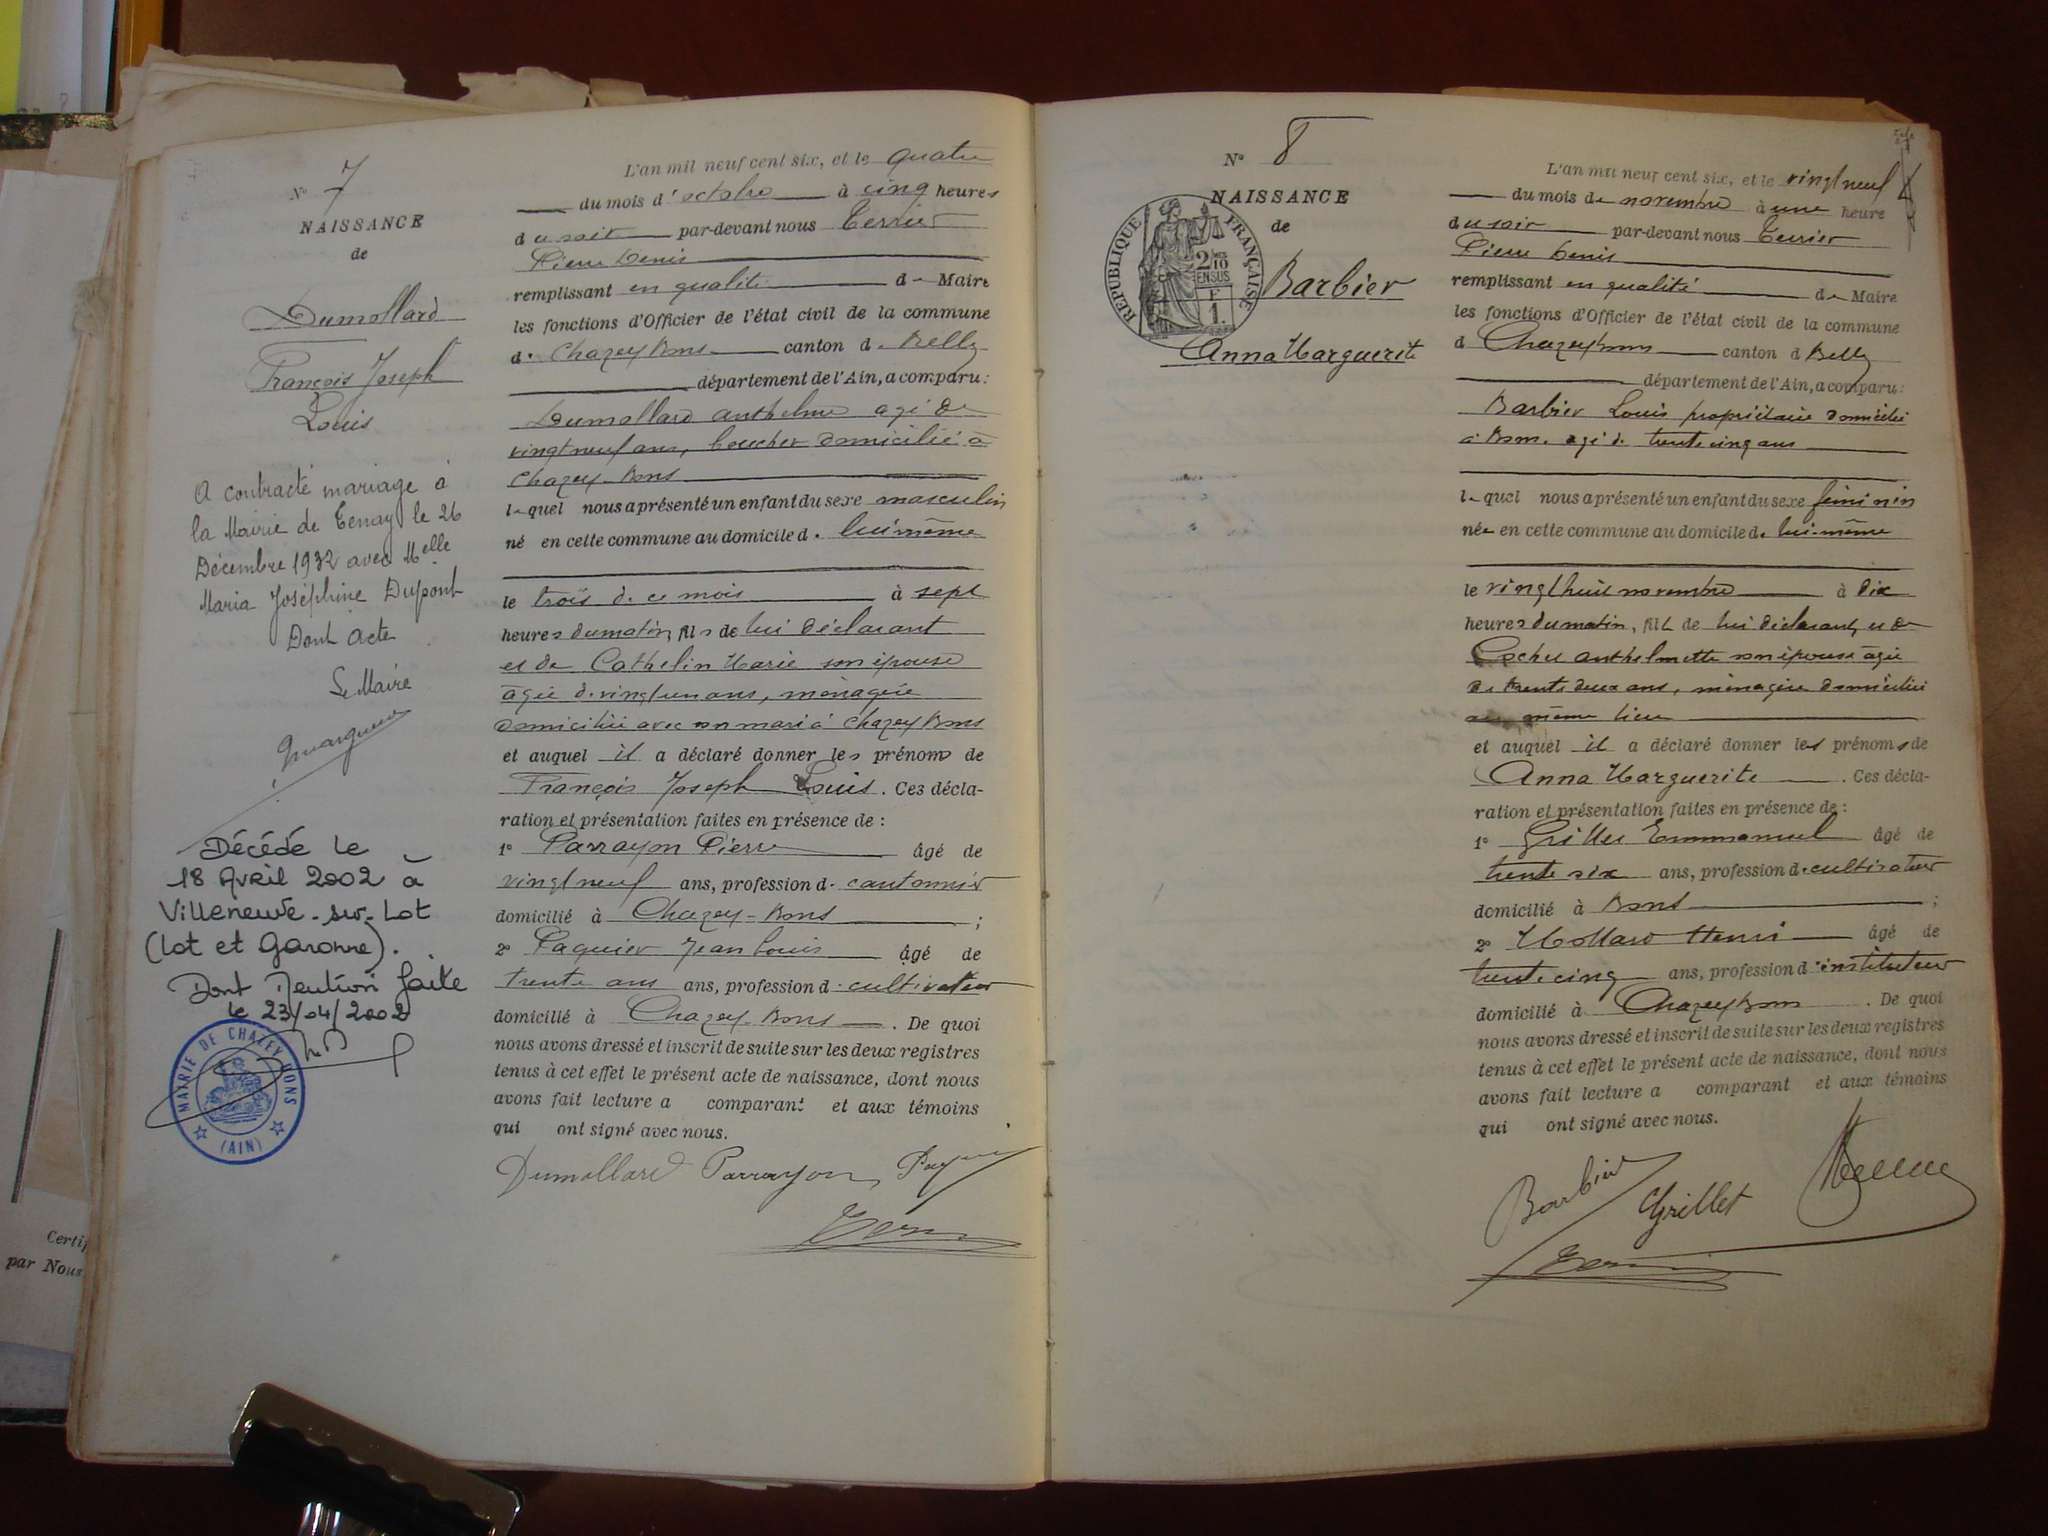 N° 7
NAISSANCE
de
Dumollard
François Joseph
Louis
A contracté mariage à
la Mairie de Tenay le 26
Décembre 1932 avec Melle
Maria Joséphine Dupont
Dont acte
Le Maire
Décédé le
18 Avril 2002 à
Villeneuve-sur-Lot
(Lot et Garonne).
Dont Mention faite
le 23/04/2002
MAIRIE DE CHAZEY BONS
(AIN)
L'an mil neuf cent six, et le quatre
du mois d'octobre à cinq heures
du soir par-devant nous Terrier
Pierre Denis
remplissant en qualité de Maire
les fonctions d'Officier de l'état civil de la commune
de Chazey Bons canton de Belley
département de l'Ain, a comparu:
Dumollard Anthelme agé de
vingt neuf ans, boucher domicilié à
Chazey-Bons
lequel nous a présenté un enfant du sexe masculin
né en cette commune au domicile de lui même
le trois de ce mois à sept
heures du matin, fils de lui déclarant
et de Cathelin Marie son épouse
âgée de vingt un ans, ménagère
domiciliée avec son mari à Chazey Bons
et auquel il a déclaré donner les prénoms de
François Joseph Louis. Ces décla-
ration et présentation faites en présence de :
1° Parrayon Pierre âgé de
vingt neuf ans, profession de cantonnier
domicilié à Chazey-Bons ;
2° Paquier Jean Louis âgé de
trente ans ans, profession de cultivateur
domicilié à Chazey-Bons. De quoi
nous avons dressé et inscrit de suite sur les deux registres
tenus à cet effet le présent acte de naissance, dont nous
avons fait lecture a comparant et aux témoins
qui ont signé avec nous.
Dumollard Parrayon
N° 8
NAISSANCE
de
RÉPUBLIQUE FRANÇAISE
2/10 EN SUS
1 F.
Barbier
Anna Marguerite
L'an mil neuf cent six, et le vingt neuf
du mois de novembre à une heure
du soir par-devant nous Terrier
Pierre Denis
remplissant en qualité de Maire
les fonctions d'Officier de l'état civil de la commune
d Chazey bons canton d Belley
département de l'Ain, a comparu:
Barbier Louis propriétaire domicilié
à Bons. agé de trente cinq ans
lequel nous a présenté un enfant du sexe féminin
née en cette commune au domicile de lui-même
le vingt huit novembre à dix
heures du matin, fille de lui déclarant et de
Anthelmette son épouse âgée
de trente deux ans, ménagère domiciliée
au même lieu
et auquel il a déclaré donner les prénoms de
Anna Marguerite. Ces décla-
ration et présentation faites en présence de :
1° Grillet Emmanuel âgé de
trente six ans, profession de cultivateur
domicilié à Bons ;
2° Mollard Henri âgé de
trente cinq ans, profession d'instituteur
domicilié à Chazey bons. De quoi
nous avons dressé et inscrit de suite sur les deux registres
tenus à cet effet le présent acte de naissance, dont nous
avons fait lecture a comparant et aux témoins
qui ont signé avec nous.
Barbier Grillet
Certif
par Nous